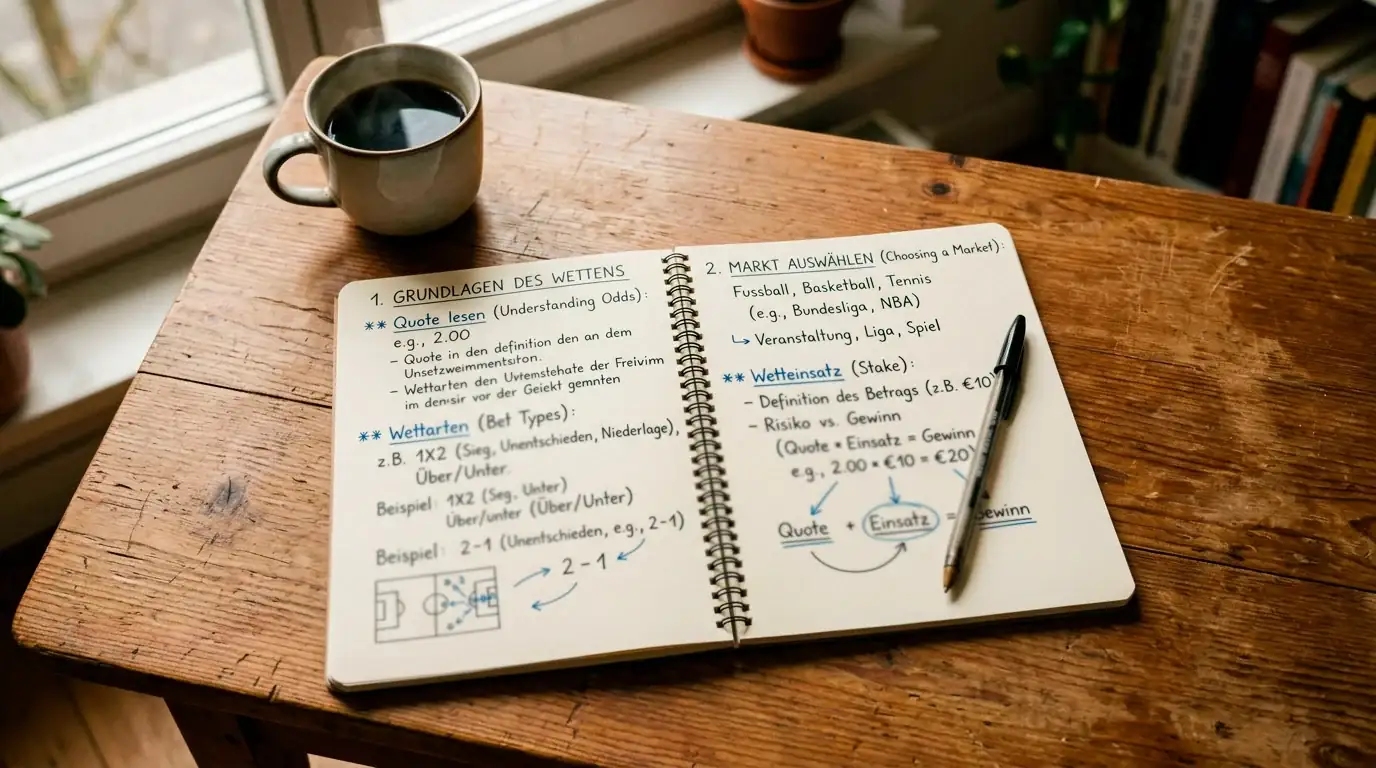 1. GRUNDLAGEN DES WETTENS
** Quote lesen (Understanding Odds):
e.g., 2.00
- Quote in den definition den an dem
Unsetzweimmentsiton.
- Wettarten den Uvtemstehate der Freivirm
im densir vor der Geiekt gemnten
** Wettarten (Bet Types):
z.B. 1X2 (Sieg, Unentschieden, Niederlage),
Über/Unter.
Beispiel: 1X2 (Seg, Unter)
Über/unter (Über/Unter)
Beispiel: 2-1 (Unentschieden, e.g., 2-1)
2-1
2. MARKT AUSWÄHLEN (Choosing a Market):
Fussball, Basketball, Tennis
(e.g., Bundesliga, NBA)
↳ Veranstaltung, Liga, Spiel
** Wetteinsatz (Stake):
- Definition des Betrags (z.B. €10)
- Risiko vs. Gewinn
(Quote * Einsatz = Gewinn
e.g., 2.00 * €10 = €20)
Quote + Einsatz = Gewinn